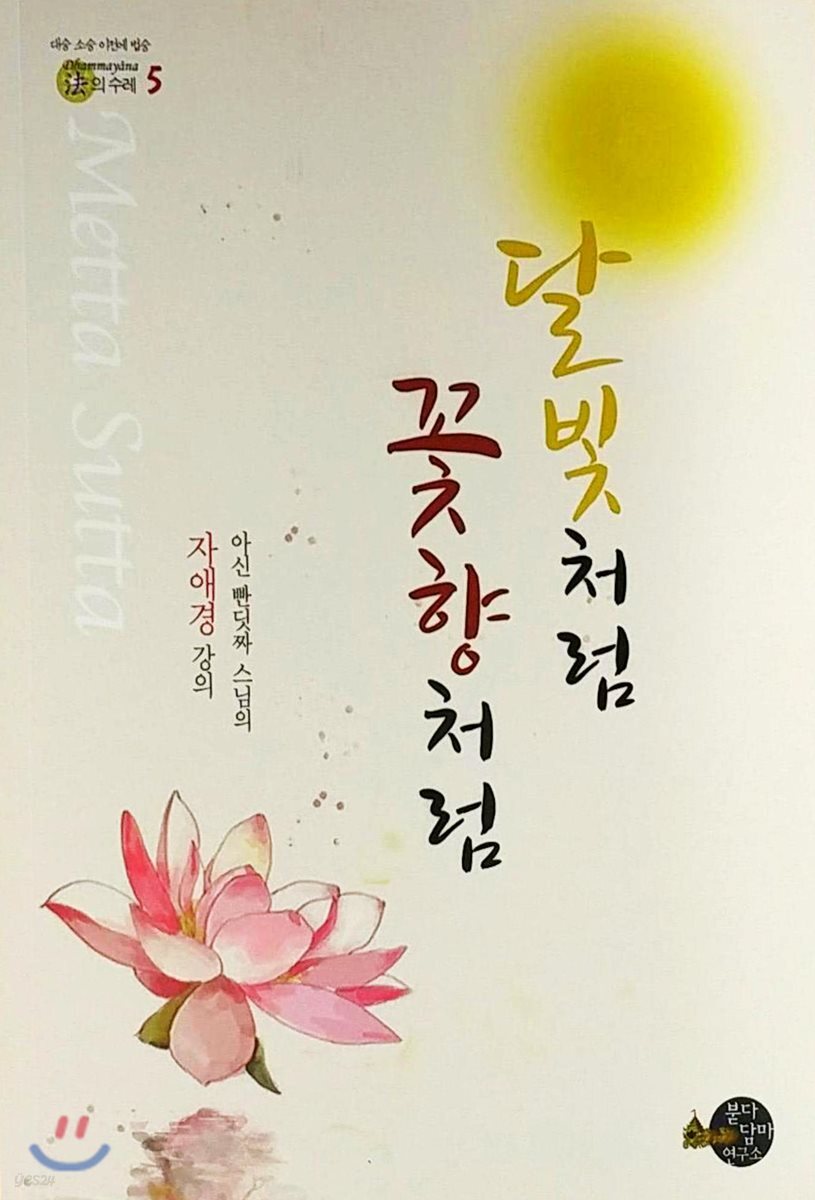 대승 소승 이전에 법승
Dhammayāna
法의 수레 5
Metta Sutta
달빛처럼
꽃향처럼
아신 빤딧짜 스님의
자애경 강의
붇다
담마
연구소
yes24